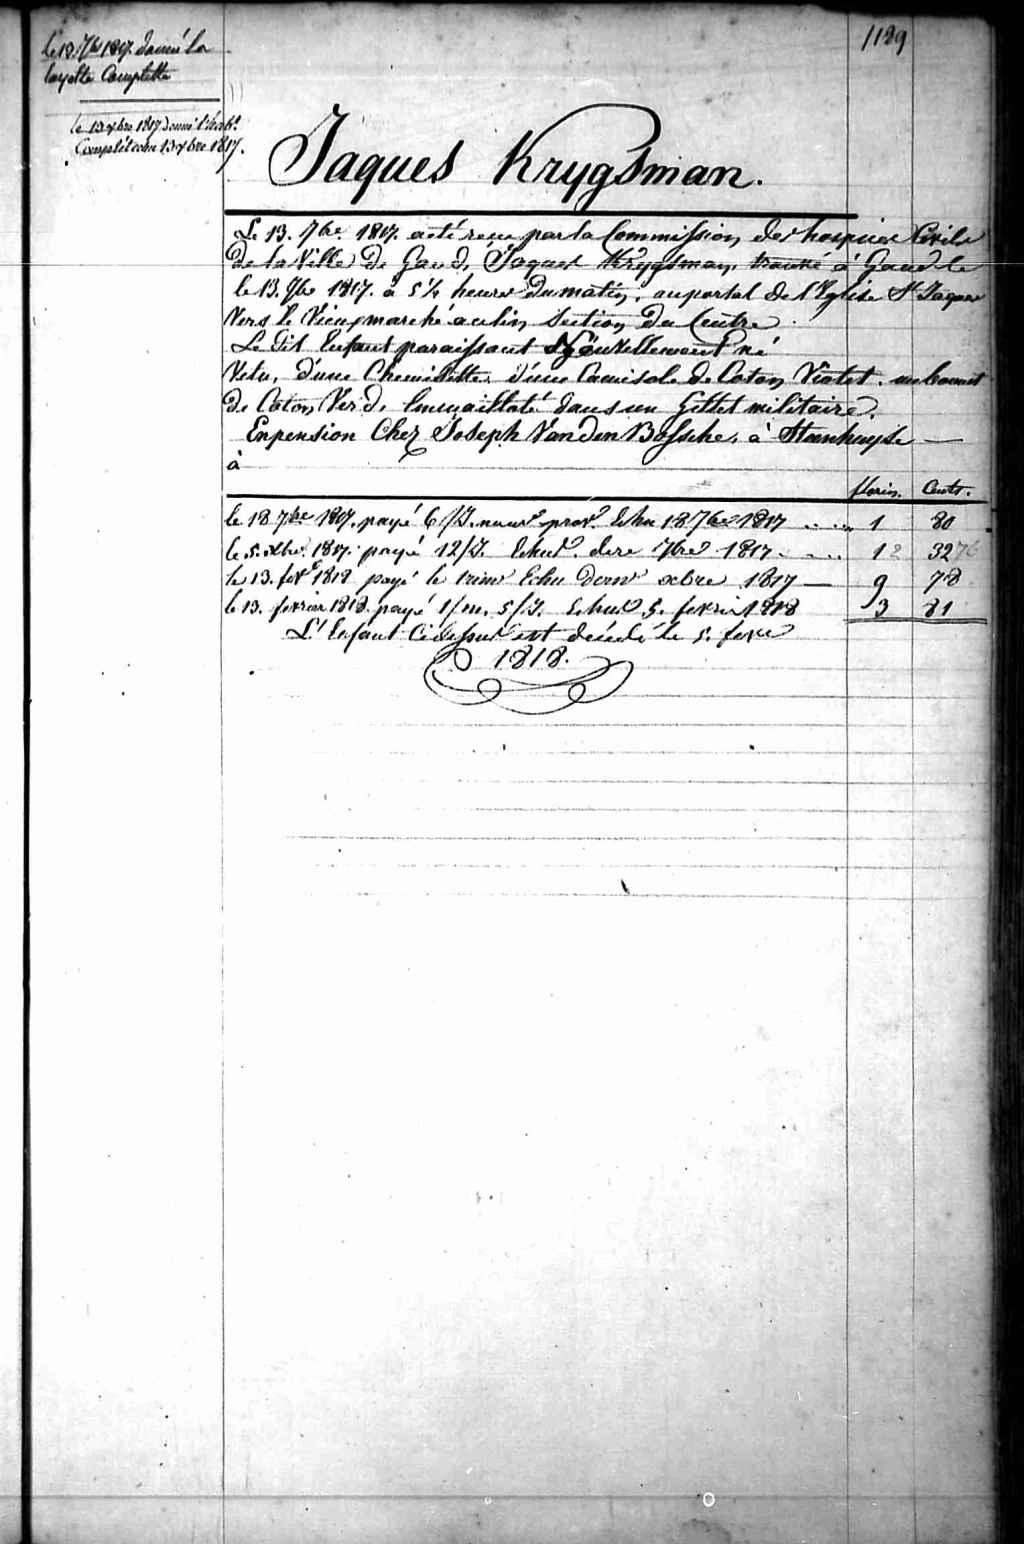 1189
le 13. 7bre 1817. donné la
layette Complette
le 13 xbre 1817 donné l'habt
Complét com 13 xbre 1817.
Jaques Krygsman.
Le 13. 7bre 1817. a été recu par la Commission des hospices Civils
de la Ville de Gand, Jaques Krygsman, trouvé à Gand le
le 13. 7bre 1817. a 5 1/4 heures du matin, au portal de l'Eglise St Jaques
Vers le Vieux marché au lin Section du Centre.
Le dit Enfant paraissant Nouvellement né
Vetu, d'une Chemisette, d'une Camisole de Coton Violet, un bonnet
de Coton Verd, Emmailloté dans un Gillet militaire.
En pension Chez Joseph Van den Bossche, à Steenhuyse —
à
florin. Cents.
le 18 7bre 1817. payé 6/J. prov. Echu 18 7bre 1817 1 80
le 5. xbre 1817. payé 12/J. Echus dere 7bre 1817 12 3276
le 13. fevr 1818 payé le trimr Echu dernr xbre 1817 — 9 78
le 13. fevrier 1818. payé 1/m. 5/J. Echus 5. fevrier 1818 3 81
L'Enfant Cidessus est décédé le 5. fevr
1818.